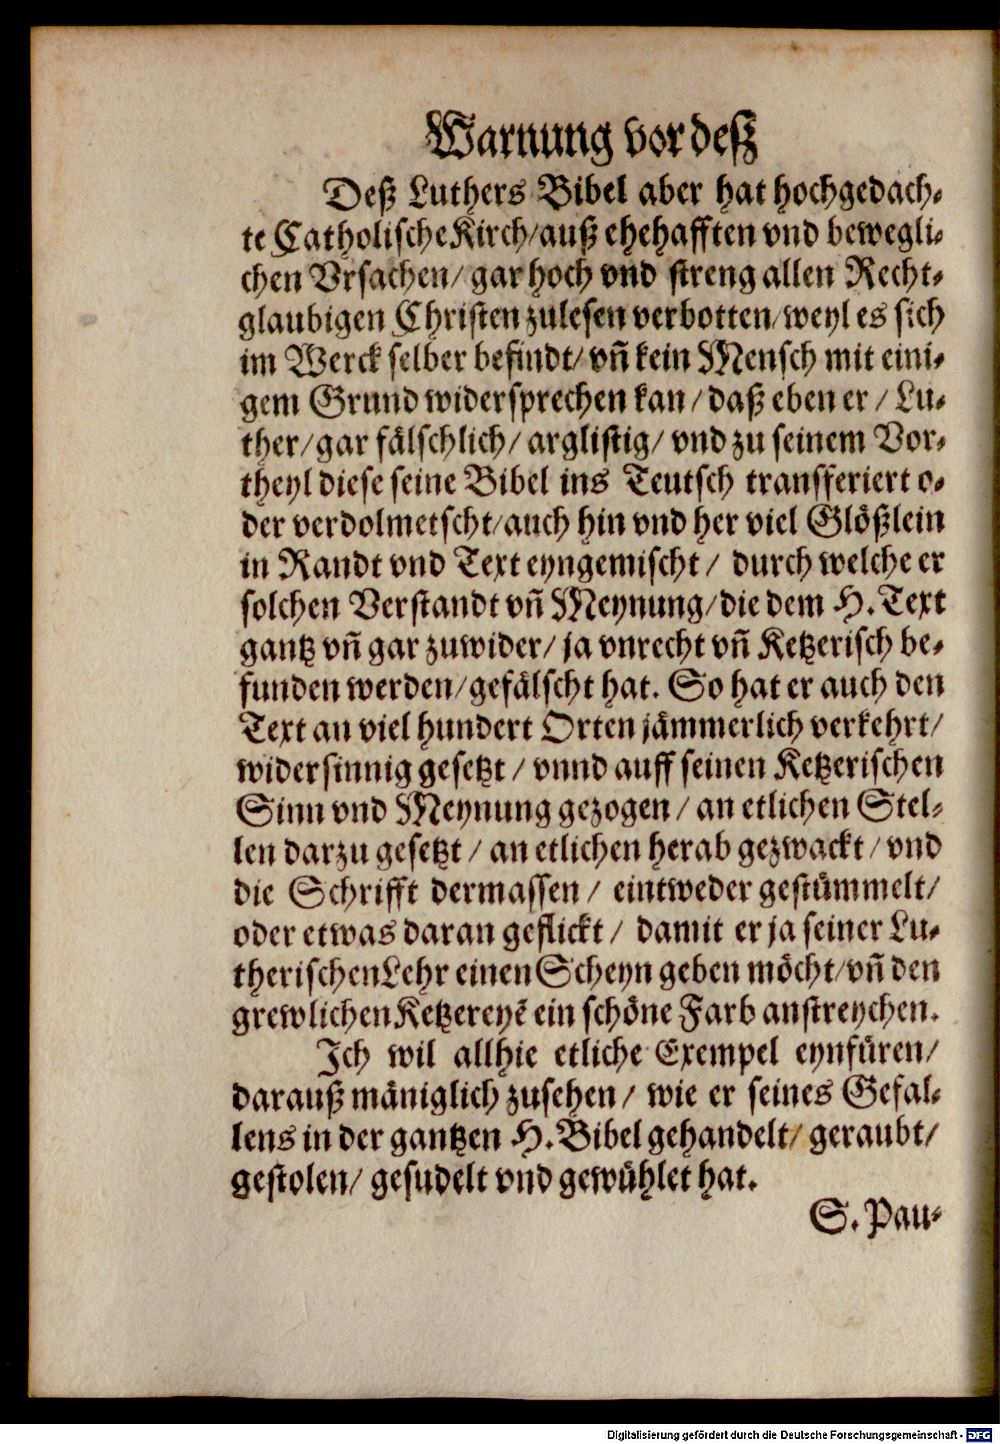 Warnung vor deß
Deß Luthers Bibel aber hat hochgedach⸗
te Catholische Kirch/auß ehehafften vnd bewegli⸗
chen Vrsachen/ gar hoch vnd streng allen Recht⸗
glaubigen Christen zulesen verbotten/weyl es sich
im Werck selber befindt/ vñ kein Mensch mit eini⸗
gem Grund widersprechen kan/ daß eben er/ Lu⸗
ther/gar fälschlich/ arglistig/ vnd zu seinem Vor⸗
theyl diese seine Bibel ins Teutsch transferiert o⸗
der verdolmetscht/auch hin vnd her viel Glößlein
in Randt vnd Text eyngemischt/ durch welche er
solchen Verstandt vñ Meynung/die dem H. Text
gantz vñ gar zuwider/ ja vnrecht vñ Ketzerisch be⸗
funden werden/gefälscht hat. So hat er auch den
Text an viel hundert Orten jämmerlich verkehrt/
widersinnig gesetzt/ vnnd auff seinen Ketzerischen
Sinn vnd Meynung gezogen/ an etlichen Stel⸗
len darzu gesetzt/ an etlichen herab gezwackt/ vnd
die Schrifft dermassen/ eintweder gestümmelt/
oder etwas daran geflickt/ damit er ja seiner Lu⸗
therischen Lehr einen Scheyn geben möcht/vñ den
grewlichen Ketzereyẽ ein schöne Farb anstreychen.
Ich wil allhie etliche Exempel eynfüren/
darauß mäniglich zusehen/ wie er seines Gefal⸗
lens in der gantzen H. Bibel gehandelt/ geraubt/
gestolen/ gesudelt vnd gewühlet hat.
S. Pau⸗
Digitalisierung gefördert durch die Deutsche Forschungsgemeinschaft - DFG